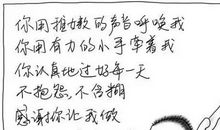 你用稚嫩的声音呼唤我
你用有力的小手牵着我
你认真地过好每一天
不抱怨,不含糊
感谢你让我做